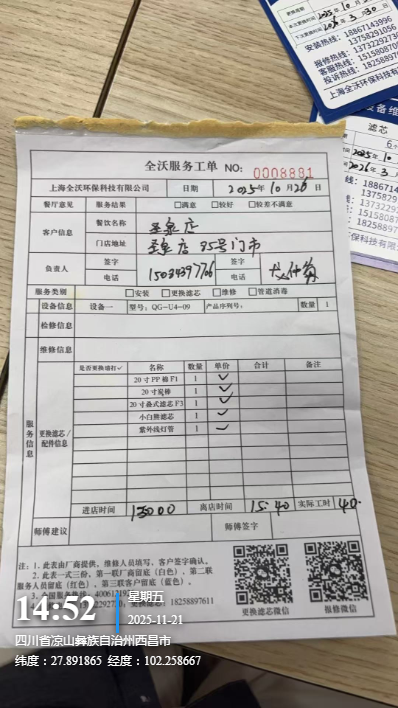 安装热线：18867143996
13758291056
报修热线：13732292730
客服热线：15158087050
投诉热线：1825889
上海全沃环保
滤芯
2025.10
2026.3
全沃服务工单 NO: 0008831
上海全沃环保科技有限公司 日期 2025年10月26日
餐厅意见 服务结果 □满意 □较好 □较差不满意
客户信息 餐饮名称
门店地址 店35号门市
负责人 签字
电话 15034397706 签字 电话
服务类别 □安装 □更换滤芯 □维修 □管道消毒
设备信息 设备一 型号：QG-U4-09 产品序列号： 数量 1
检修信息
维修信息
服务信息
更换滤芯/配件信息
是否更换请打✓ 名称 数量 单价 合计 备注
20寸PP棉F1 1 ✓
20寸炭棒 1 ✓
20寸叠式滤芯F3 1 ✓
小白熊滤芯 1 ✓
紫外线灯管 1 ✓
进店时间 13000 离店时间 15:40 实际工时 40
师傅建议 师傅签字
注：1. 此表由厂商提供，维修人员填写，客户签字确认。
2. 此表一式三份，第一联厂商留底（白色）、第二联
服务人员留底（红色）、第三联客户留底（蓝色）。
更换滤芯：18258897611
更换滤芯微信 报修微信
14:52
星期五
2025-11-21
四川省凉山彝族自治州西昌市
纬度：27.891865 经度：102.258667